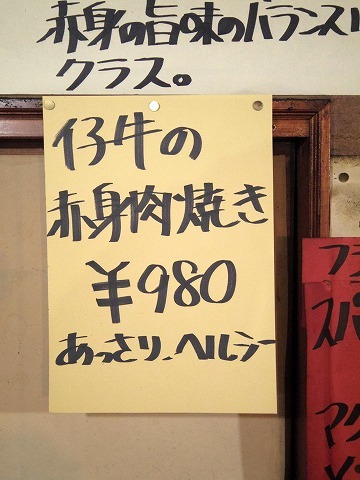 赤身の旨味のバランス
クラス。
仔牛の
赤身肉焼き
¥980
あっさり、ヘルシー
フラ
スパ
マグ